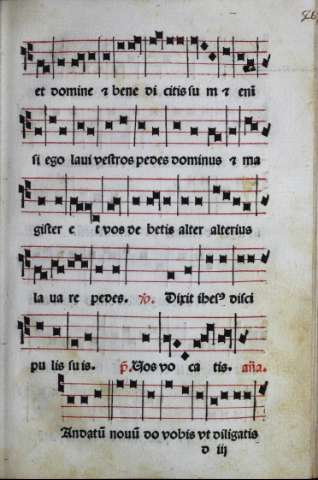 et domine ⁊ bene di citis su m ⁊ eni
si ego laui vestros pedes dominus ⁊ ma
gister e t vos de betis alter alterius
la ua re pedes. ℣. Dixit ihesꝰ disci
pu lis suis. p̄. Vos vo ca tis. añā.
Andatū nouū do vobis vt diligatis
d iij